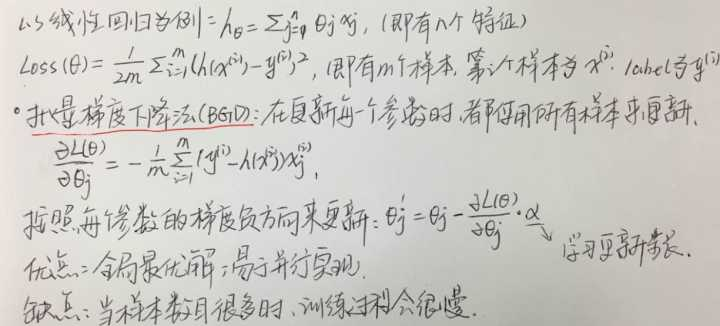 以线性回归为例: hθ = Σⁿⱼ₌₀ θj xj, (即有n个特征)
Loss(θ) = 1/2m Σᵐᵢ₌₁ (h(x⁽ⁱ⁾) - y⁽ⁱ⁾)², (即有m个样本, 第i个样本为 x⁽ⁱ⁾, label为y⁽ⁱ⁾)
• 批量梯度下降法(BGD): 在更新每一个参数时, 都使用所有样本来更新.
∂L(θ)/∂θj = - 1/m Σᵐᵢ₌₁ (y⁽ⁱ⁾ - h(x⁽ⁱ⁾)) xj⁽ⁱ⁾,
按照每个参数的梯度负方向来更新: θj' = θj - ∂L(θ)/∂θj · α
学习更新步长.
优点: 全局最优解; 易于并行实现.
缺点: 当样本数目很多时, 训练过程会很慢.